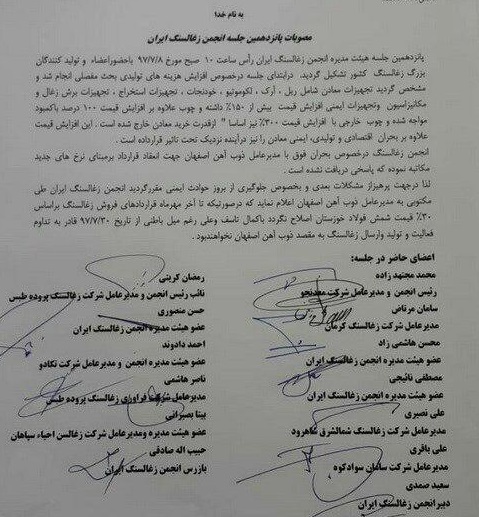 به نام خدا
مصوبات پانزدهمین جلسه انجمن زغالسنگ ایران
پانزدهمین جلسه هیئت مدیره انجمن زغالسنگ ایران رأس ساعت ۱۰ صبح مورخ ۹۷/۷/۸ باحضوراعضاء و تولید کنندگان
بزرگ زغالسنگ کشور تشکیل گردید. درابتدای جلسه درخصوص افزایش هزینه های تولیدی بحث مفصلی انجام شد و
مشخص گردید تجهیزات معادن شامل ریل ، آرک ، لکوموتیو ، خودنجات ، تجهیزات استخراج ، تجهیزات برش زغال و
مکانیزاسیون وتجهیزات ایمنی افزایش قیمت بیش از ۱۵۰٪ داشته و چوب علاوه بر افزایش قیمت ۱۰۰ درصد باکمبود
مواجه شده و چوب خارجی با افزایش قیمت ۳۰۰٪ نیز اساسا " ازقدرت خرید معادن خارج شده است . این افزایش قیمت
علاوه بر بحران اقتصادی و تولیدی، ایمنی معادن را نیز درآینده نزدیک تحت تاثیر قرارداده است .
انجمن زغالسنگ درخصوص بحران فوق با مدیرعامل ذوب آهن اصفهان جهت انعقاد قرارداد برمبنای نرخ های جدید
مکاتبه نموده که پاسخی دریافت نشده است .
لذا درجهت پرهیزاز مشکلات بعدی و بخصوص جلوگیری از بروز حوادث ایمنی مقررگردید انجمن زغالسنگ ایران طی
مکتوبی به مدیرعامل ذوب آهن اصفهان اعلام نماید که درصورتیکه تا آخر مهرماه قراردادهای فروش زغالسنگ براساس
۳۰٪ قیمت شمش فولاد خوزستان اصلاح نگردد باکمال تاسف وعلی رغم میل باطنی از تاریخ ۹۷/۷/۳۰ قادر به تداوم
فعالیت و تولید وارسال زغالسنگ به مقصد ذوب آهن اصفهان نخواهندبود .
اعضای حاضر در جلسه:
محمد مجتهد زاده
رئیس انجمن و مدیرعامل شرکت معدنجو
سامان مرتاض
مدیرعامل شرکت زغالسنگ کرمان
محسن هاشمی زاد
عضو هیئت مدیره انجمن زغالسنگ ایران
مصطفی نائیجی
عضو هیئت مدیره انجمن زغالسنگ ایران
علی نصیری
مدیرعامل شرکت زغالسنگ شمالشرق شاهرود
علی باقری
مدیرعامل شرکت سامان سوادکوه
سعید صمدی
دبیرانجمن زغالسنگ ایران
رمضان کریتی
نائب رئیس انجمن و مدیرعامل شرکت زغالسنگ پروده طبس
حسن منصوری
عضو هیئت مدیره انجمن زغالسنگ ایران
احمد دادوند
عضو هیئت مدیره انجمن و مدیرعامل شرکت نکادو
ناصر هاشمی
مدیرعامل شرکت فراوری زغالسنگ پروده طبس
بیتا بصیرانی
عضو هیئت مدیره ومدیرعامل شرکت زغالسن احیاء سپاهان
حبیب اله صادقی
بازرس انجمن زغالسنگ ایران